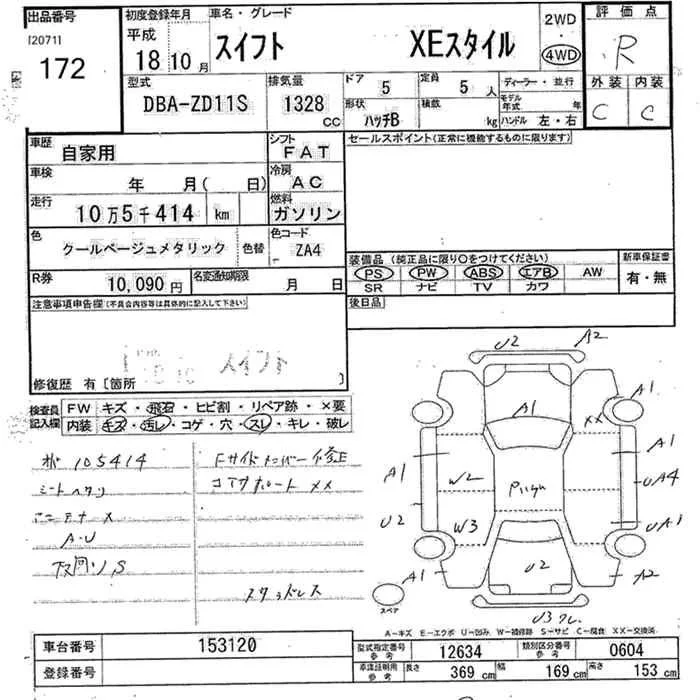 出品番号 初度登録年月 車名・グレード 2WD 評価点
[2071] 平成 スイフト XEスタイル ・ R
172 18 10月 4WD
型式 排気量 ドア 5 定員 5 人 ディーラー・並行 外装 内装
DBA-ZD11S 1328 cc 形状 ハッチB 積数 kg モデル年式 年 C C
ハンドル 左・右
車歴 自家用 シフト FAT セールスポイント(正常に機能するものに限ります)
車検 年 月( 日) 冷房 AC
走行 10万5千414 km 燃料 ガソリン
色 クールベージュメタリック 色替 色コード ZA4
装備品 (純正品に限り○をつけてください) 新車保証書
R券 10,090円 名変通知期限 月 日 PS PW ABS エアB AW 有・無
SR ナビ TV カワ
注意事項申告欄(不具合内容等は具体的に記入して下さい) 後日品
スイフト
修復歴 有 [箇所 ]
検査員記入欄 FW キズ・飛石・ヒビ割・リペア跡・×要
内装 キズ・汚レ・コゲ・穴・スレ・キレ・破レ
105414 Fサイドメンバー修正
シートヘタリ コアサポート XX
アンテナ ×
A・U
下回リS
スタッドレス
U2 A2
A1 A1 XX A1
A1 W2 A1
UA4
U2 W3 UA1
A1 U2 A2
スペア U3
A-キズ E-エクボ U-凹み W-補修跡 S-サビ C-腐食 XX-交換済
車台番号 153120 型式指定番号 参考 12634 類別区分番号 参考 0604
登録番号 車庫証明用 参考 長さ 369 cm 幅 169 cm 高さ 153 cm